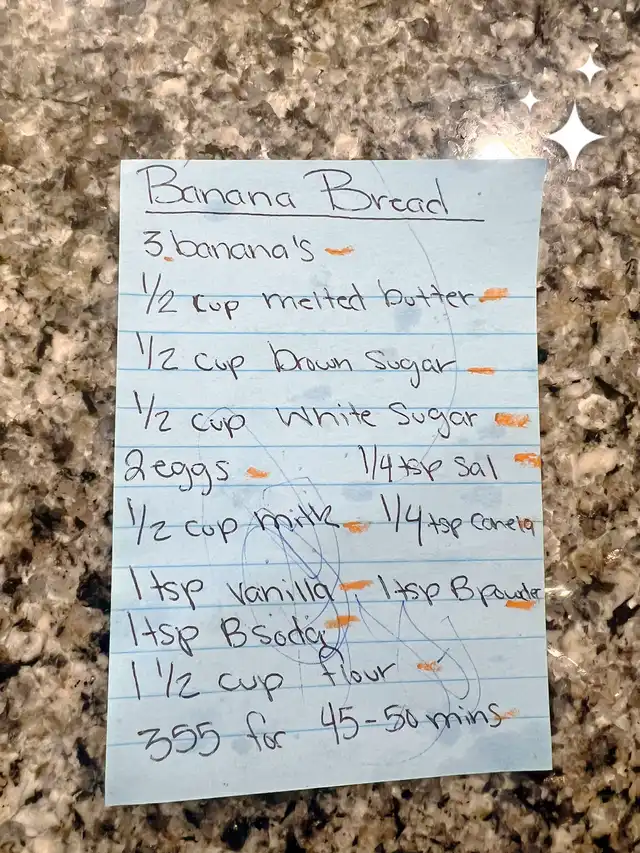 Banana Bread
3 banana's
1/2 cup melted butter
1/2 cup brown sugar
1/2 cup White Sugar
2 eggs 1/4 tsp Sal
1/2 cup milk 1/4 tsp Canela
1 tsp vanilla 1 tsp B powder
1 tsp B soda
1 1/2 cup flour
355 for 45-50 mins